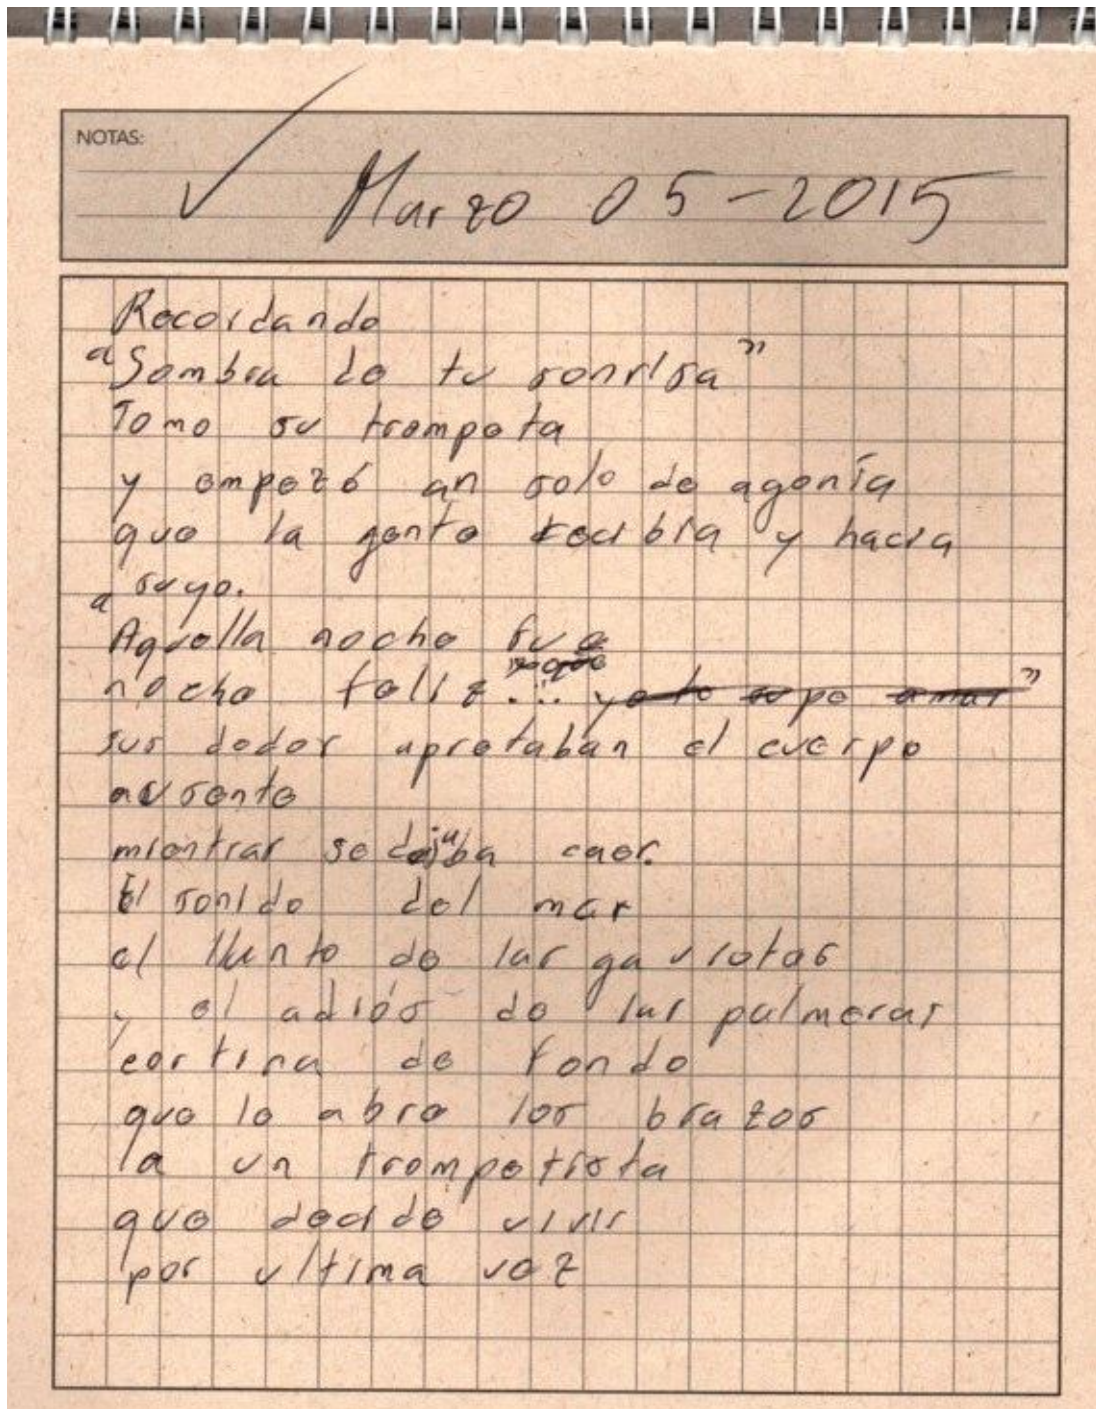 NOTAS:
Marzo 05-2015
Recordando
"Sombra de tu sonrisa"
Tomo su trompeta
y empezó un solo de agonía
que la gente recibía y hacia
suyo.
"Aquella noche fue
noche feliz... yo te supe amar"
sus dedos apretaban el cuerpo
ausente
mientras se dejaba caer.
El sonido del mar
el llanto de las gaviotas
y el adiós de las palmeras
cortina de fondo
que le abre los brazos
a un trompetista
que decide vivir
por ultima vez